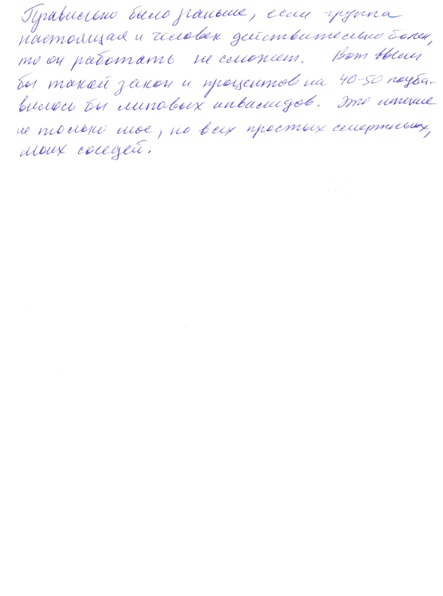 Правильно было раньше, если группа
настоящая и человек действительно болен,
то он работать не сможет. Вот ввели
бы такой закон и процентов на 40-50 поуба-
вилось бы липовых инвалидов. Это мнение
не только мое, но всех простых смертных,
моих соседей.